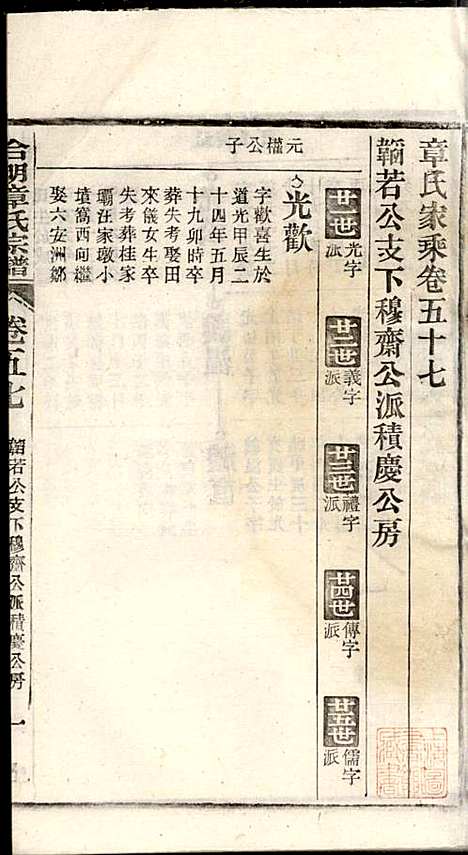 章氏家乘卷五十七
韜若公支下穆齋公派積慶公房
廿一世 光字派
廿二世 義字派
廿三世 禮字派
廿四世 傳字派
廿五世 儒字派
元權公子
光歡
字歡喜生於
道光甲辰二
十四年五月
十九卯時卒
葬失考娶田
來儀女生卒
失考葬桂家
壩汪家墩小
墳窩西向繼
娶六安洲鄒
合朝章氏宗譜
卷五七
韜若公支下穆齋公派積慶公房
一